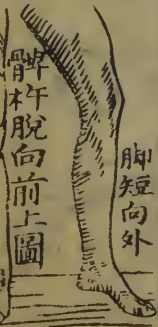 脚短向外
髀杵脫向前上圖